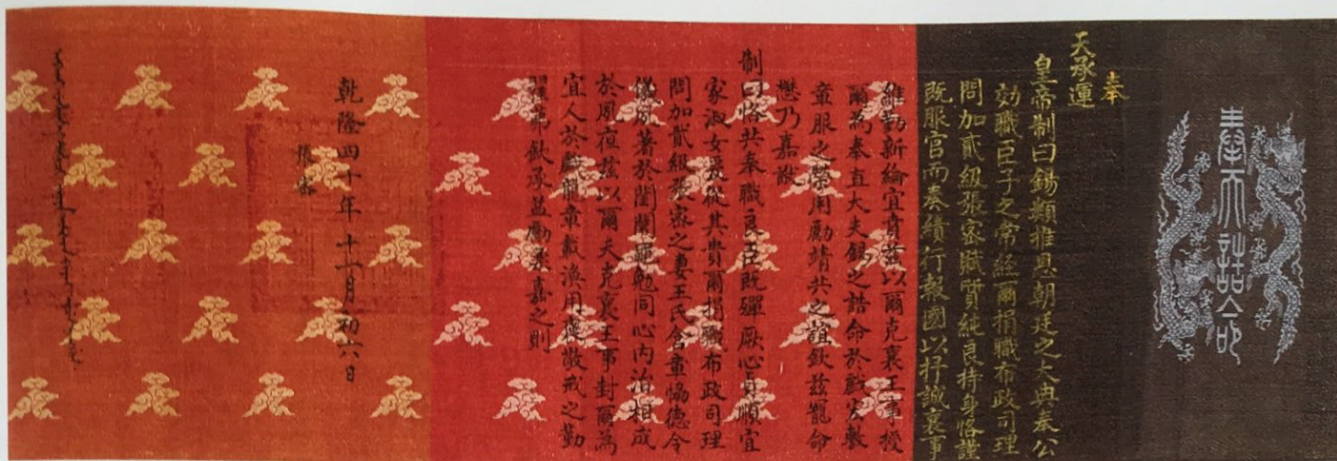 奉天誥命
奉
天承運
皇帝制曰錫類推恩朝廷之大典奉公
効職臣子之常經爾捐職布政司理
問加貳級張密職質純良持身恪謹
既服官而奏績行報國以抒誠襄事
維勤新綸宜賁茲以爾克襄王事授
爾為奉直大夫錫之誥命於戲宏敷
章服之榮用勵靖共之誼欽茲寵命
懋乃嘉猷
制曰恪共奉職良臣既殫厥心貞順宜
家淑女爰從其貴爾捐職布政司理
問加貳級張密之妻王氏含章協德令
儀夙著於閨闈黽勉同心內治相成
於夙夜茲以爾夫克襄王事封爾為
宜人於戲龍章載渙用褒敬戒之勤
翟茀欽承益勵柔嘉之則
乾隆四十年十一月初六日
張密